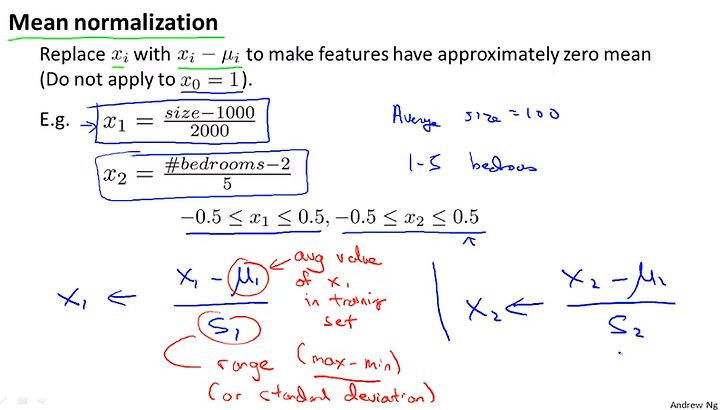 Mean normalization
Replace xᵢ with xᵢ − μᵢ to make features have approximately zero mean
(Do not apply to x₀ = 1).
E.g. → x₁ = (size−1000)/2000
Average size = 100
x₂ = (#bedrooms−2)/5
1-5 bedrooms
−0.5 ≤ x₁ ≤ 0.5, −0.5 ≤ x₂ ≤ 0.5
x₁ ← (x₁ − μ₁)/S₁
avg value
of x₁
in training
set
x₂ ← (x₂ − μ₂)/S₂
range (max-min)
(or standard deviation)
Andrew Ng